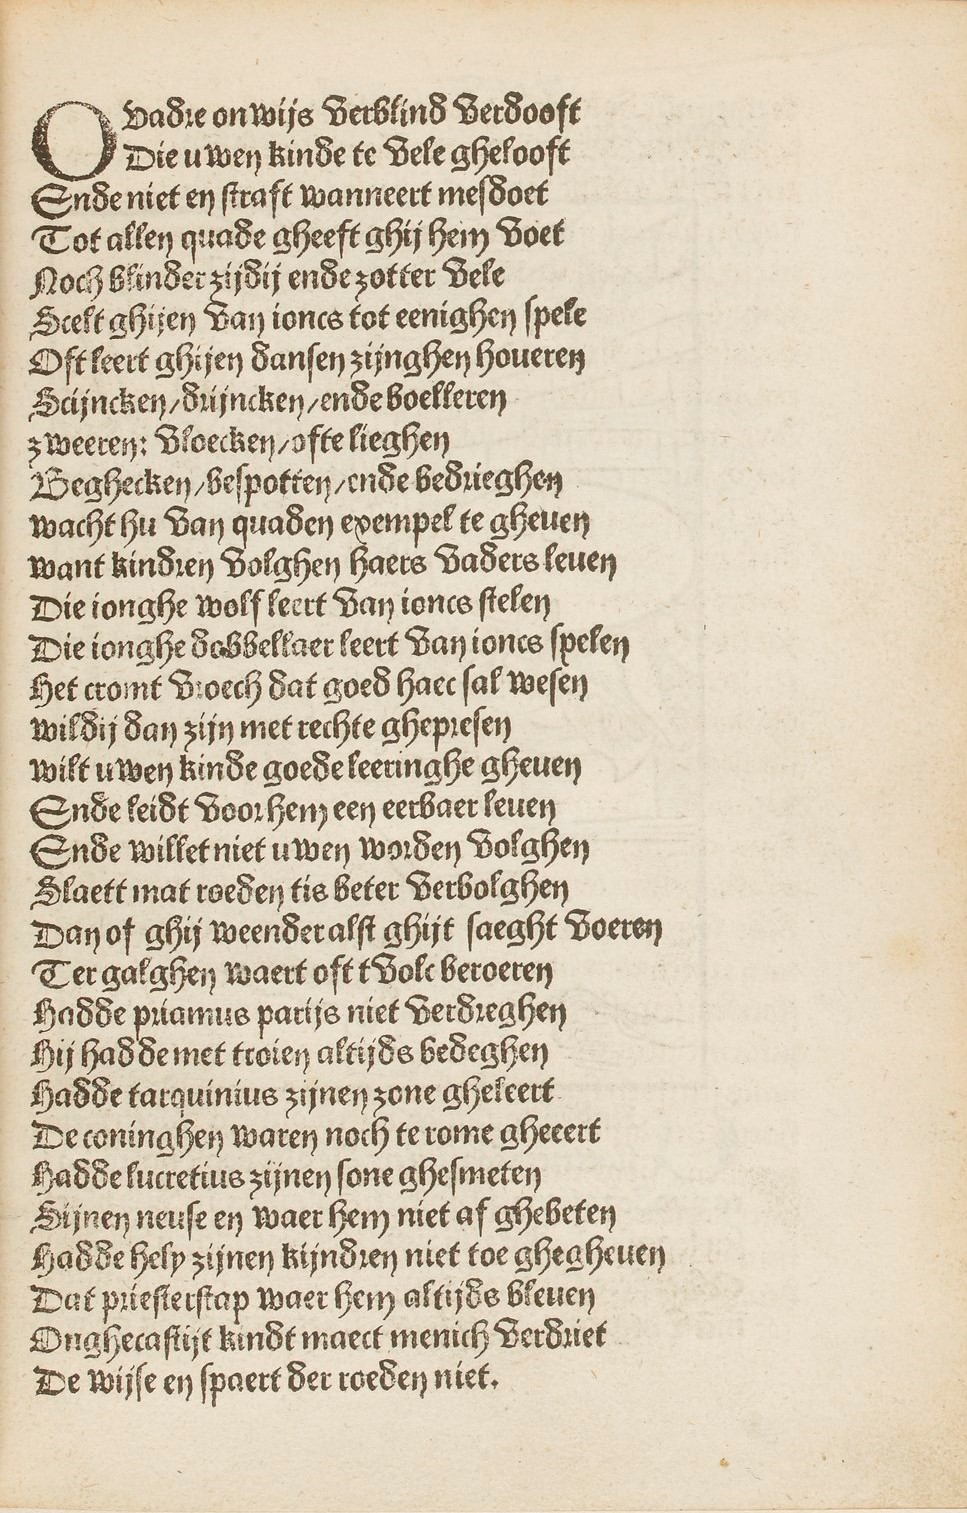 O Vadre onwijs verblind verdooft
Die uwen kinde te vele ghelooft
Ende niet en straft wanneert mesdoet
Tot allen quade gheeft ghij hem voet
Noch blinder zijdij ende zotter vele
Steltt ghijen van ioncs tot eenighen spele
Oft leert ghijen dansen zijnghen houeren
Scijncken/drijncken/ende boelleren
zweeren: vloecken/ofte lieghen
Beghecken/bespotten/ende bedrieghen
wacht hu van quaden exempel te gheuen
want kindren volghen haers vaders leuen
Die ionghe wolf leert van ioncs stelen
Die ionghe dobbellaer leert van ioncs spelen
Het cromt vroech dat goed haec sal wesen
wildij dan zijn met rechte ghepresen
wilt uwen kinde goede leeringhe gheuen
Ende leidt voor hem een eerbaer leuen
Ende willet niet uwen worden volghen
Slaett mat roeden tis beter verbolghen
Dan of ghij weender alst ghijt saeght voeren
Ter galghen waert oft tvolc beroeren
Hadde priamus parijs niet verdreghen
Hij hadde met troien altijds bedeghen
Hadde tarquinius zijnen zone gheleert
De coninghen waren noch te rome gheeert
Hadde lucretius zijnen sone ghesmeten
Sijnen neuse en waer hem niet af ghebeten
Hadde hely zijnen kijndren niet toe ghegheuen
Dat priesterstap waer hem altijds bleuen
Onghecastijt kindt maect menich verdriet
De wijse en spaert der roeden niet.